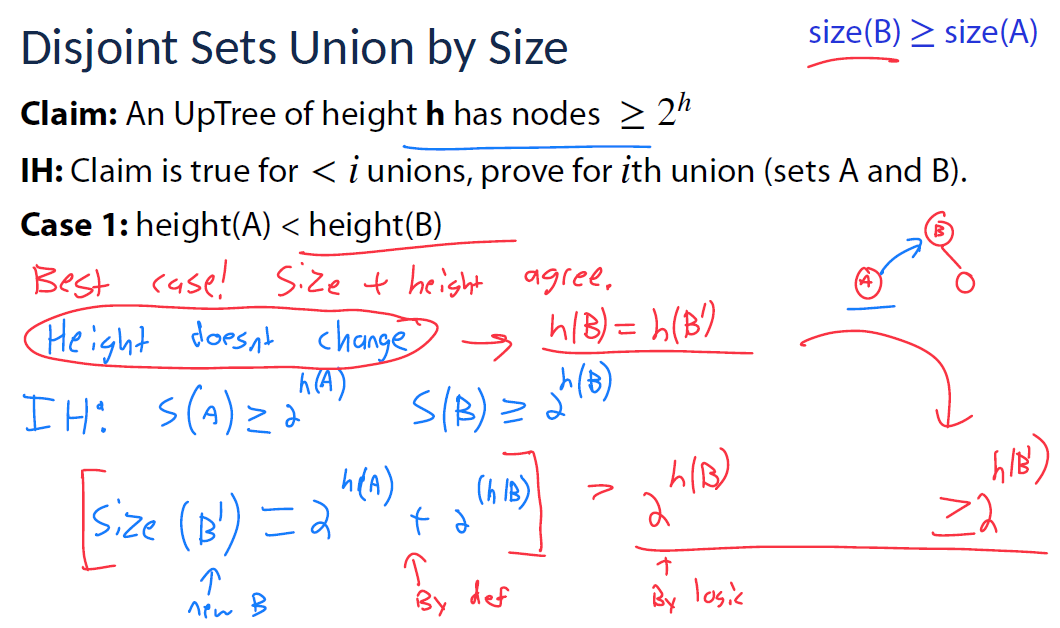 Disjoint Sets Union by Size
size(B) ≥ size(A)
Claim: An UpTree of height h has nodes ≥ 2^h
IH: Claim is true for < i unions, prove for ith union (sets A and B).
Case 1: height(A) < height(B)
B
A
Best case! Size + height agree.
Height doesnt change → h(B) = h(B')
IH: S(A) ≥ 2^h(A) S(B) ≥ 2^h(B)
[Size (B') = 2^h(A) + 2^(h(B)] > 2^h(B) ≥ 2^h(B')
↑ new B
↑ By def
↑ By logic